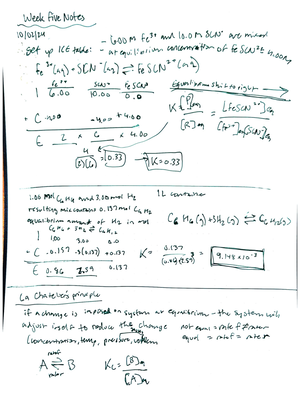 Week Five Notes
10/02/24
- 6.00 M Fe³⁺ and 10.0 M SCN⁻ are mixed
Set up ICE table: - at equilibrium concentration of FeSCN²⁺ is 4.00M
Fe³⁺(aq) + SCN⁻(aq) ⇌ FeSCN²⁺(aq)
Equilibrium shift to right →
Fe³⁺ SCN⁻ FeSCN²⁺
I 6.00 10.00 0.0
+ C -4.00 -4.00 + 4.00
E 2 6 4.00
K = [P]eq / [R]eq = [FeSCN²⁺]eq / [Fe³⁺]eq[SCN⁻]eq
4 / (2)(6) = 0.33 → K = 0.33
1.00 mol C₆H₆ and 3.00 mol H₂
1L container
resulting mix contains 0.137 mol C₆H₁₂
equilibrium amount of H₂ in mol
C₆H₆(g) + 3H₂(g) ⇌ C₆H₁₂(g)
C₆H₆ + 3H₂ ⇌ C₆H₁₂
I 1.00 3.00 0.0
+ C -0.137 -3(0.137) +0.137
E 0.86 2.59 0.137
K = 0.137 / (0.86)(2.59)³ = 9.148 × 10⁻³
Le Chatelier's principle
if a change is imposed on system at equilibrium - the system will
adjust itself to reduce the change
(concentration, temp, pressure, volume
not equal = rate f ≠ rate r
equal = rate f = rate r
A ⇌ B
Kc = [B]eq / [A]eq